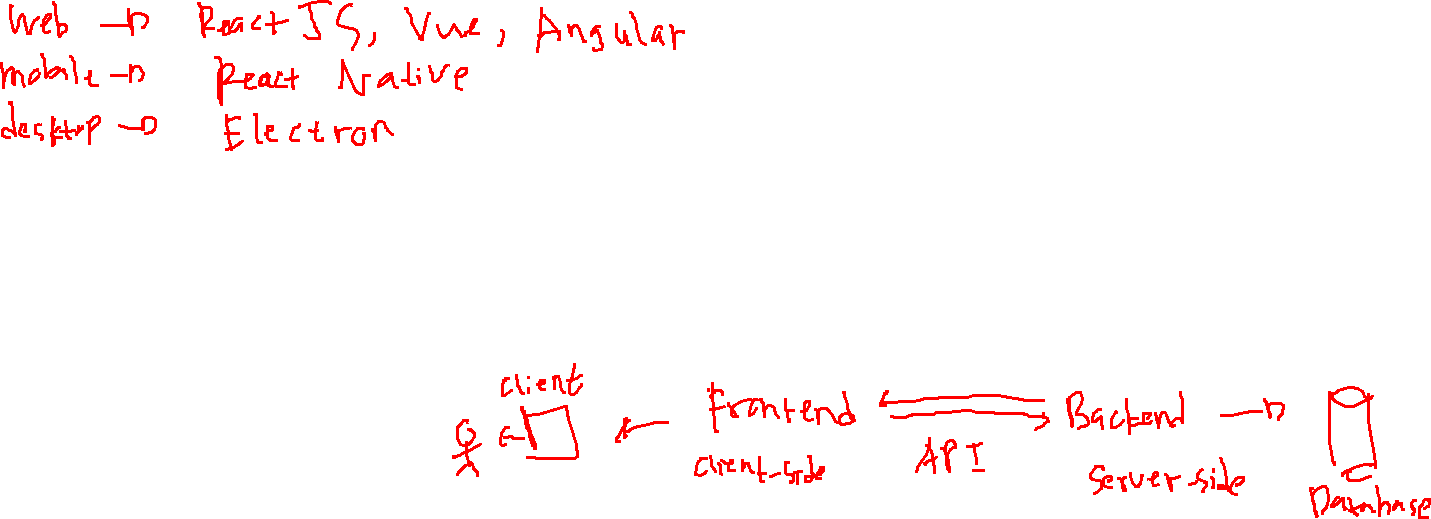 Web → ReactJS, Vue, Angular
mobile → React Native
desktop → Electron
client
Frontend
Backend
client-side
API
server-side
Database